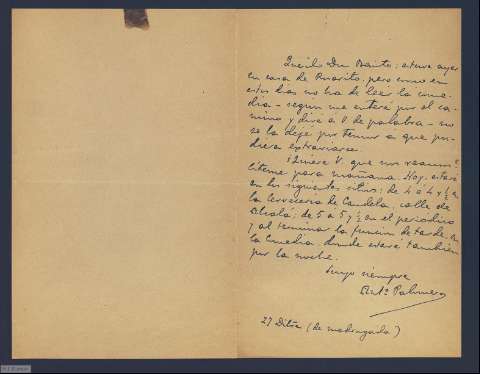 Querido Don Benito: estuve ayer
en casa de Rosario, pero como en
estos días no ha de leer la come-
dia - según me enteré por el ca-
mino y diré á V. de palabra - no
se la dejé por temor a que pu-
diera extraviarse.
¿Quiere V. que nos
para mañana. Hoy estaré
en los siguientes sitios: de 4 á 4 y ½ en
la Cervecería de Candela, calle de
Alcalá; de 5 a 5 y ½ en el periódico
y al terminar la función de tarde en
la Comedia, donde estaré también
por la noche.
Suyo siempre
Antº Palomero
27 Dibre (de madrugada)